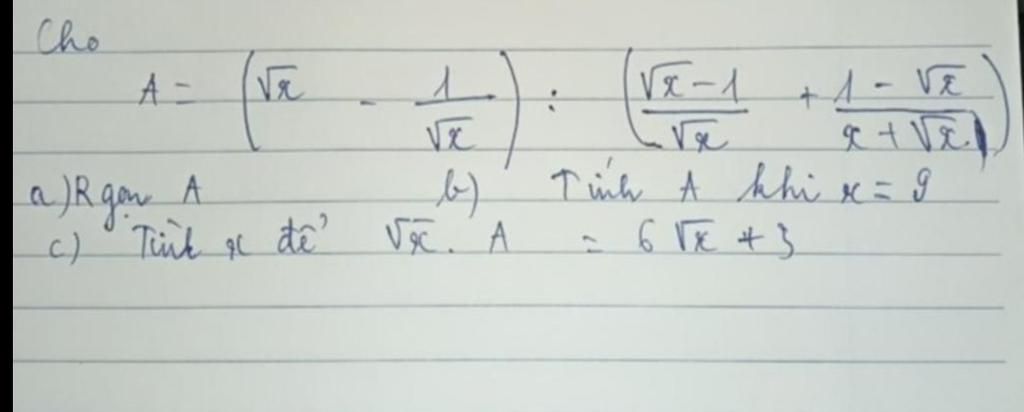 Cho
A = (√x - 1/√x) : ((√x - 1)/√x + (1 - √x)/(x + √x))
a) R gọn A b) Tính A khi x = 9
c) Tính x để √x. A = 6√x + 3